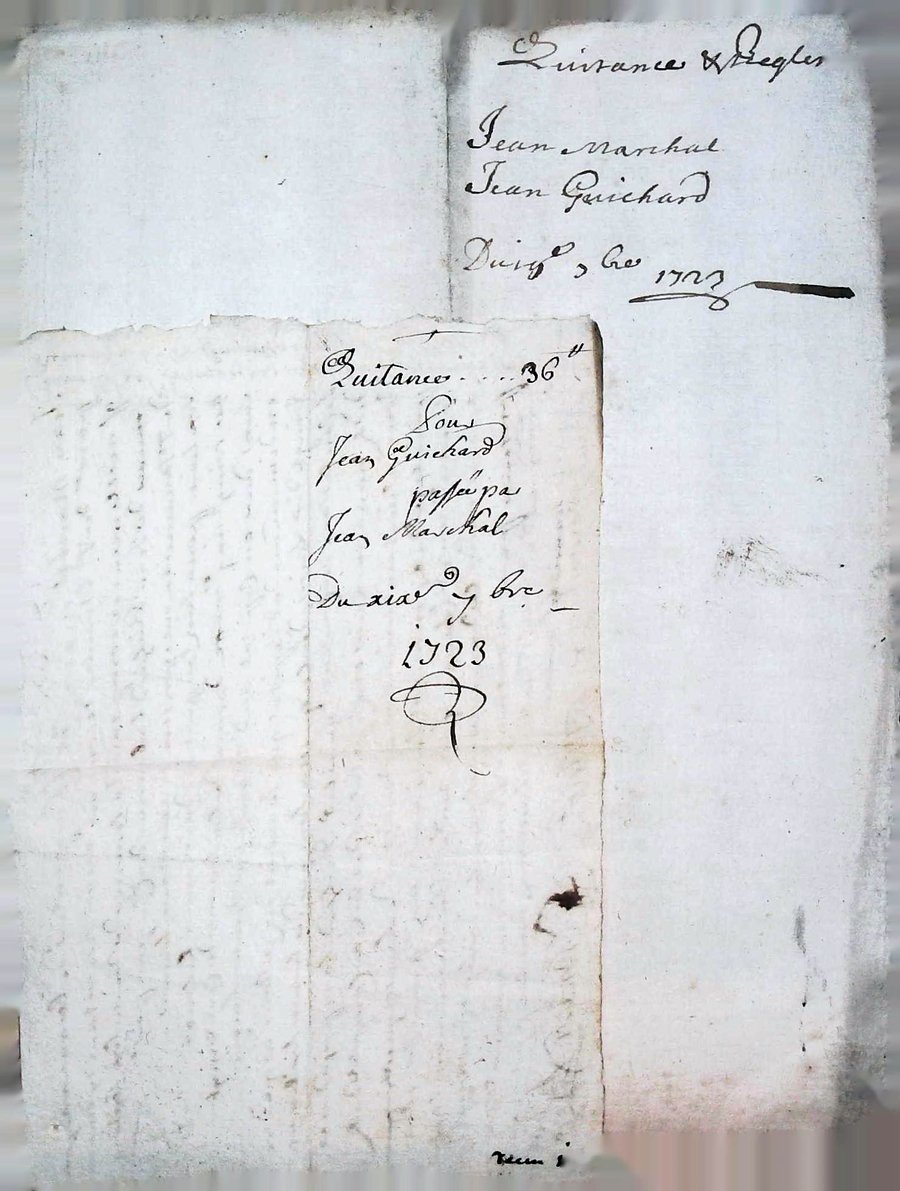 Quitance & Regler
Jean Marchal
Jean Guichard
Du 19e 7bre 1723
Quitance.....36lt
Pour
Jean Guichard
passée pa
Jean Marchal
Du xixe 7bre
1723